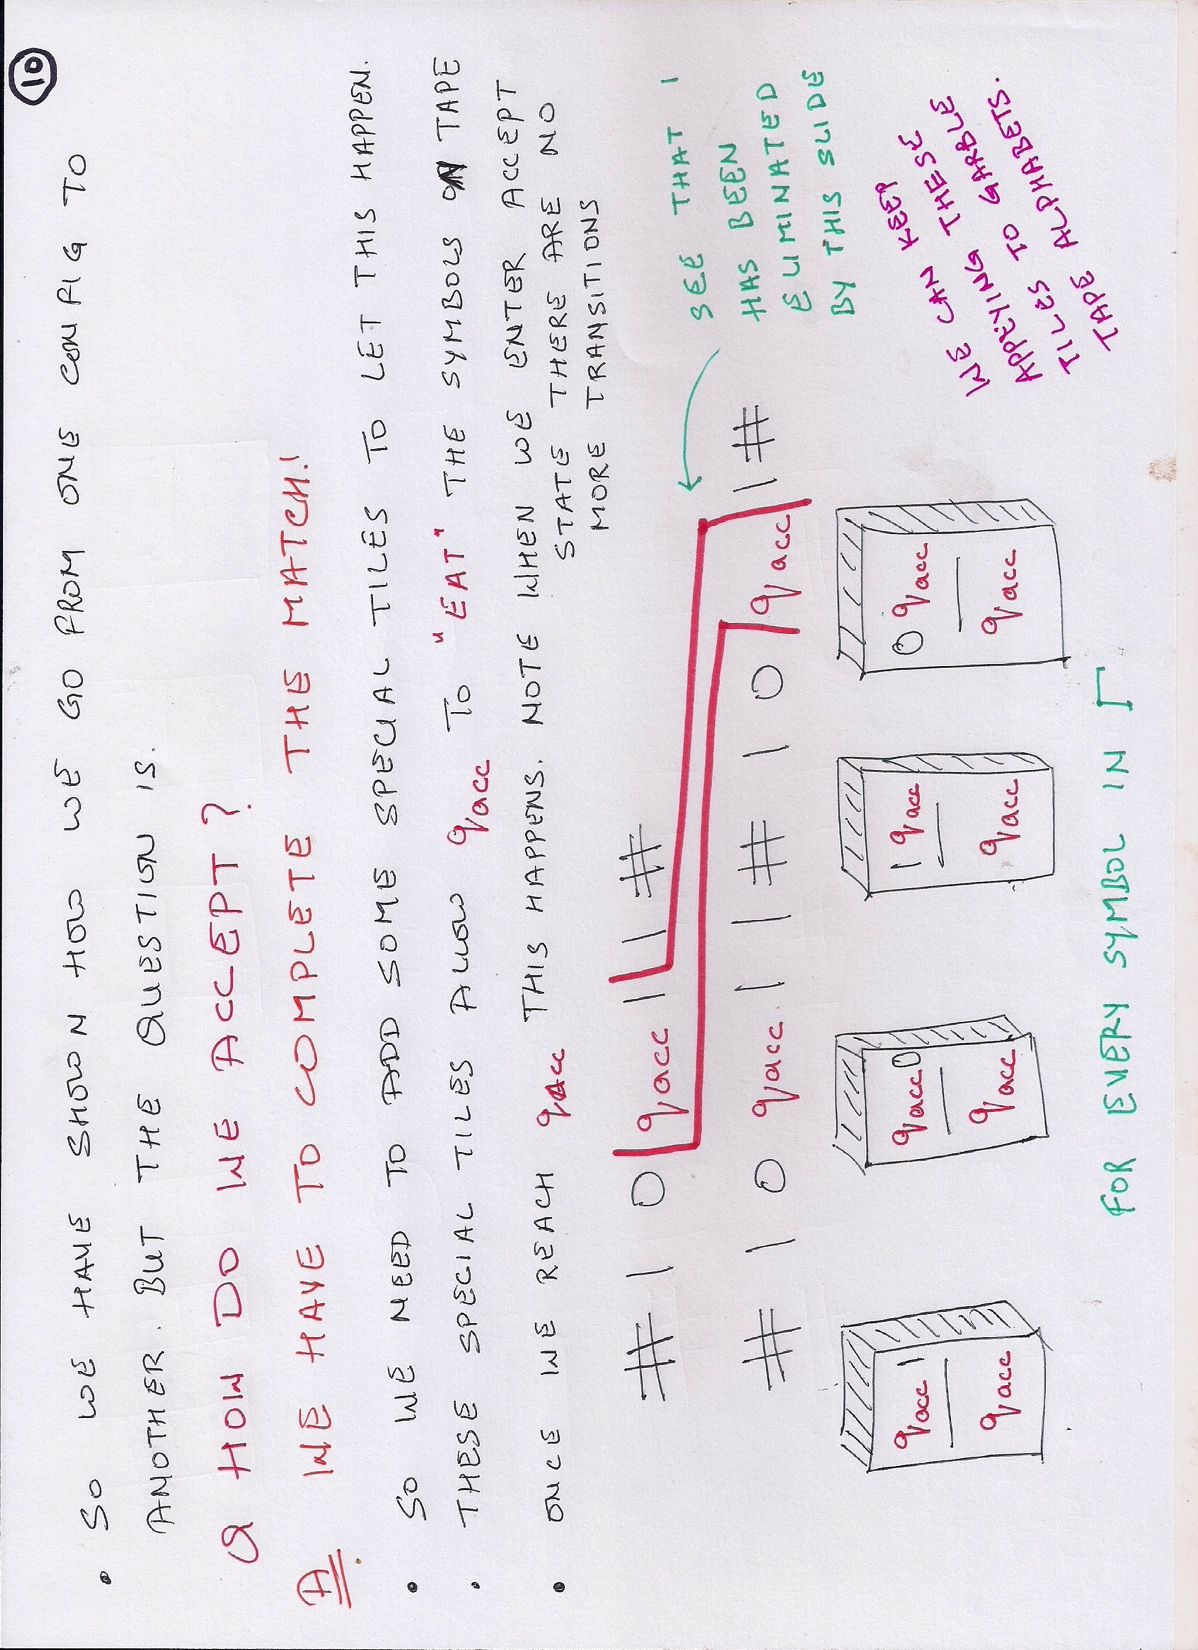 10
• SO WE HAVE SHOWN HOW WE GO FROM ONE CONFIG TO
ANOTHER. BUT THE QUESTION IS.
Q HOW DO WE ACCEPT ?
A WE HAVE TO COMPLETE THE MATCH!
• SO WE NEED TO ADD SOME SPECIAL TILES TO LET THIS HAPPEN.
• THESE SPECIAL TILES ALLOW qacc TO "EAT" THE SYMBOLS ON TAPE
• ONCE WE REACH qacc THIS HAPPENS. NOTE WHEN WE ENTER ACCEPT
STATE THERE ARE NO
MORE TRANSITIONS
# 1 0 qacc 1 1 #
# 1 0 qacc 1 1 # 1 0 qacc 1 #
SEE THAT 1
HAS BEEN
ELIMINATED
BY THIS SLIDE
qacc 1
qacc
qacc 0
qacc
1 qacc
qacc
0 qacc
qacc
WE CAN KEEP
APPLYING THESE
TILES TO GARBLE
TAPE ALPHABETS.
FOR EVERY SYMBOL IN Γ